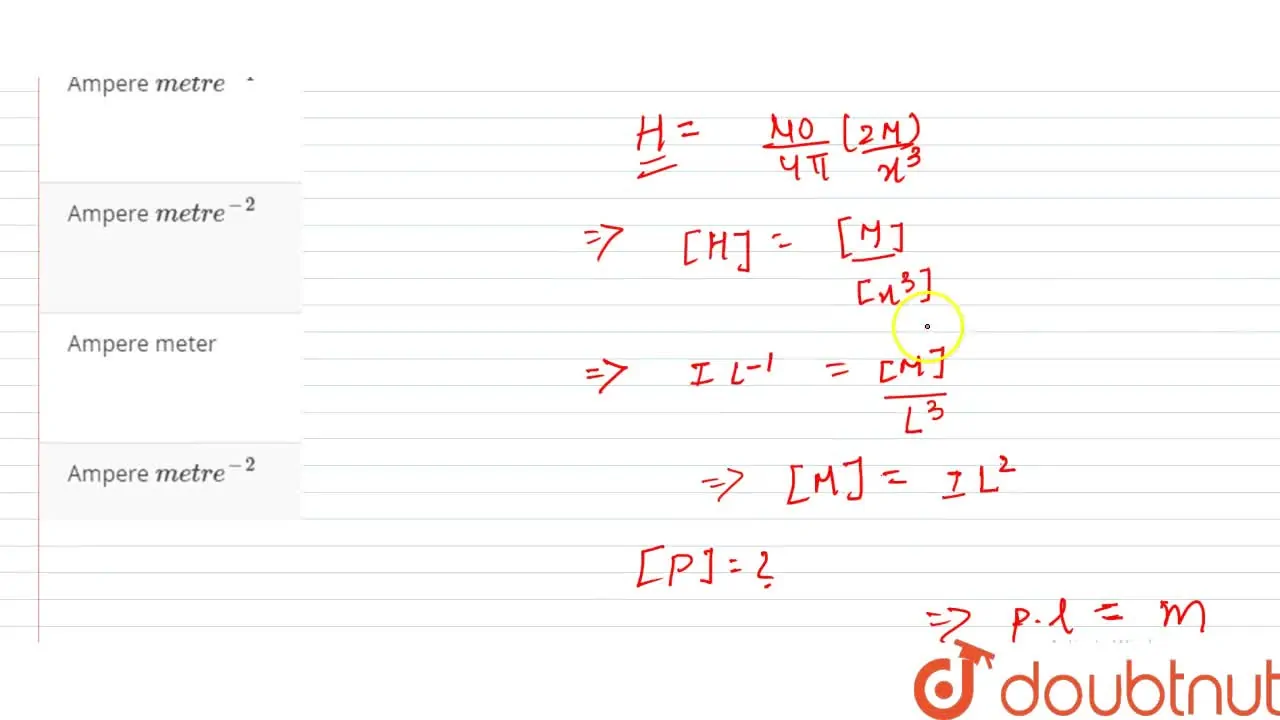 Ampere metre⁻¹
Ampere metre⁻²
Ampere meter
Ampere metre⁻²
H = μ0/4π (2M)/x³
⇒ [H] = [M]/[x³]
⇒ I L⁻¹ = [M]/L³
⇒ [M] = I L²
[P] = ?
⇒ P.l = m
doubtnut